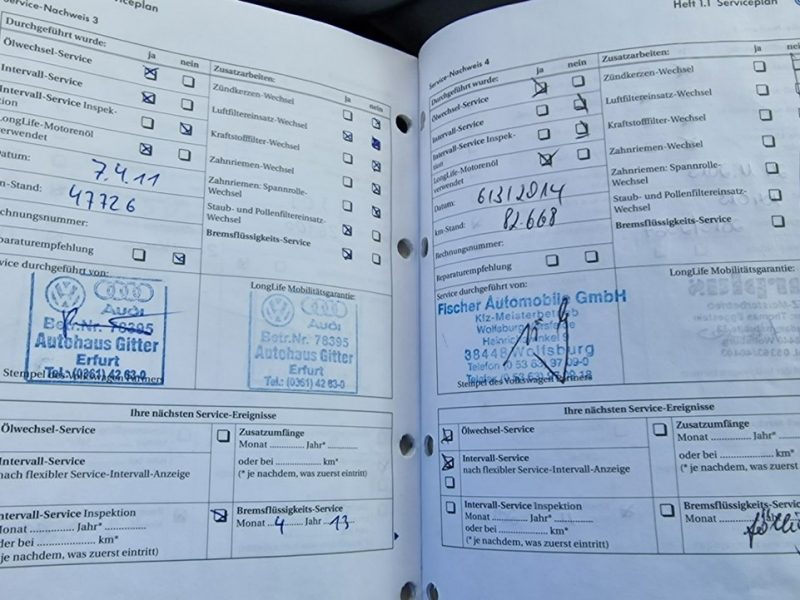 Serviceplan
Service-Nachweis 3
Durchgeführt wurde:
ja nein
Ölwechsel-Service
Intervall-Service
Intervall-Service Inspek-
tion
LongLife-Motorenöl
verwendet
Datum:
7.4.11
km-Stand:
47726
Rechnungsnummer:
Reparaturempfehlung
Service durchgeführt von:
Zusatzarbeiten:
ja nein
Zündkerzen-Wechsel
Luftfiltereinsatz-Wechsel
Kraftstofffilter-Wechsel
Zahnriemen-Wechsel
Zahnriemen: Spannrolle-
Wechsel
Staub- und Pollenfiltereinsatz-
Wechsel
Bremsflüssigkeits-Service
LongLife Mobilitätsgarantie:
Audi
Betr.Nr. 78395
Autohaus Gitter
Erfurt
Tel.: (0361) 42 63-0
Stempel des Volkswagen Partners
Audi
Betr.Nr. 78395
Autohaus Gitter
Erfurt
Tel.: (0361) 42 63-0
Ihre nächsten Service-Ereignisse
Ölwechsel-Service
Intervall-Service
nach flexibler Service-Intervall-Anzeige
Intervall-Service Inspektion
Monat ............ Jahr* ............
oder bei ............ km*
(* je nachdem, was zuerst eintritt)
Zusatzumfänge
Monat ............ Jahr* ............
oder bei ............ km*
(* je nachdem, was zuerst eintritt)
Bremsflüssigkeits-Service
Monat 4 Jahr 13
Heft 1.1 Serviceplan
Service-Nachweis 4
Durchgeführt wurde:
ja nein
Ölwechsel-Service
Intervall-Service
Intervall-Service Inspek-
tion
LongLife-Motorenöl
verwendet
Datum:
6/3/2014
km-Stand:
82.668
Rechnungsnummer:
Reparaturempfehlung
Service durchgeführt von:
Zusatzarbeiten:
ja
Zündkerzen-Wechsel
Luftfiltereinsatz-Wechsel
Kraftstofffilter-Wechsel
Zahnriemen-Wechsel
Zahnriemen: Spannrolle-
Wechsel
Staub- und Pollenfiltereinsatz-
Wechsel
Bremsflüssigkeits-Service
LongLife Mobilitätsgarantie:
Fischer Automobile GmbH
Kfz-Meisterbetrieb
38448 Wolfsburg
Stempel des Volkswagen Partners
Ihre nächsten Service-Ereignisse
Ölwechsel-Service
Intervall-Service
nach flexibler Service-Intervall-Anzeige
Intervall-Service Inspektion
Monat ............ Jahr* ............
oder bei ............ km*
(* je nachdem, was zuerst eintritt)
Zusatzumfänge
Monat ............ Jahr* ............
oder bei ............ km*
(* je nachdem, was zuerst eintritt)
Bremsflüssigkeits-Service
Monat